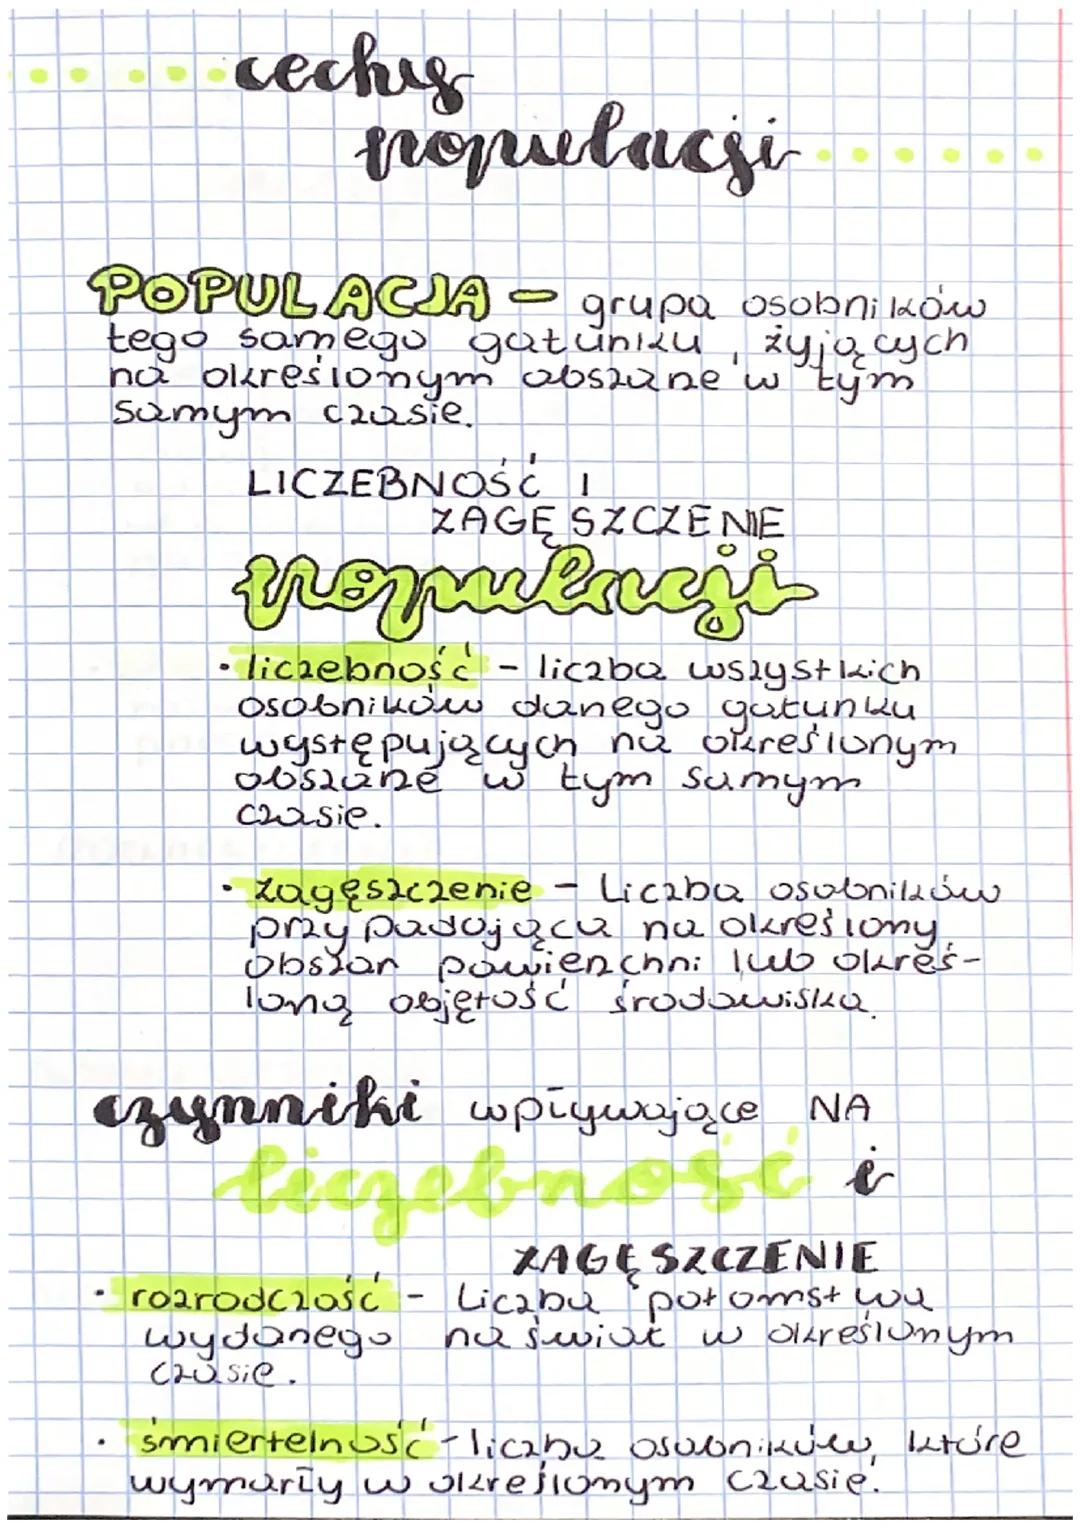 cechy
populacji
POPULACJA - grupa osobników
tego samego gatunku, żyjących
na określonym obszarze w tym
samym czasie.
LICZEBNOŚĆ I
ZAGĘSZCZENIE
populacji
• liczebność - liczba wszystkich
osobników danego gatunku
występujących na określonym
obszarze w tym samym
czasie.
• zagęszczenie - Liczba osobników
przypadająca na określony
obszar powierzchni lub okreś-
loną objętość środowiska.
czynniki wpływające NA
liczebność i
ZAGĘSZCZENIE
• rozrodczość - Liczba potomstwa
wydanego na świat w określonym
czasie.
• śmiertelność - liczba osobników, które
wymarły w określonym czasie.